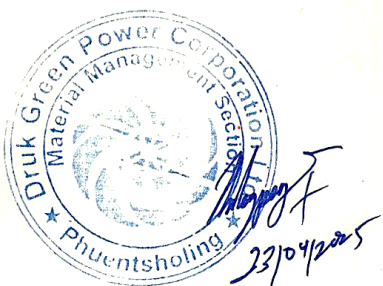 Druk Green Power Corporation Ltd
Material Management Section
★ Phuentsholing ★
23/04/2025